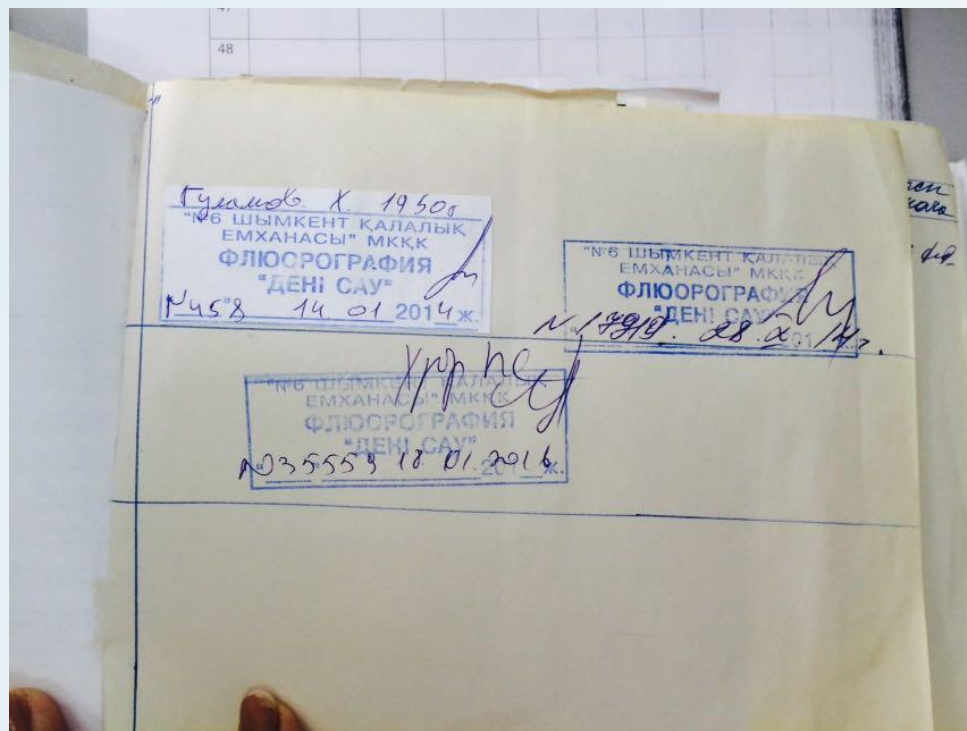 47
48
Гуламов Х. 1950г
"№6 ШЫМКЕНТ ҚАЛАЛЫҚ
ЕМХАНАСЫ" МКҚК
ФЛЮОРОГРАФИЯ
"ДЕНІ САУ"
№458 14 01 2014ж.
"№6 ШЫМКЕНТ ҚАЛАЛЫҚ
ЕМХАНАСЫ" МКҚК
ФЛЮОРОГРАФИЯ
"ДЕНІ САУ"
28. X 14г.
"№6 ШЫМКЕНТ ҚАЛАЛЫҚ
ЕМХАНАСЫ" МКҚК
ФЛЮОРОГРАФИЯ
"ДЕНІ САУ"
№35559 18. 01. 2016 ж.